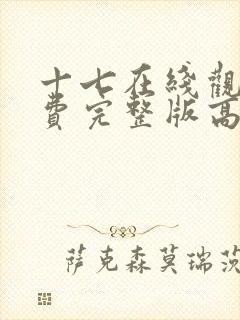 十七在綫觀
費完整版高
萨克森莫瑞茨